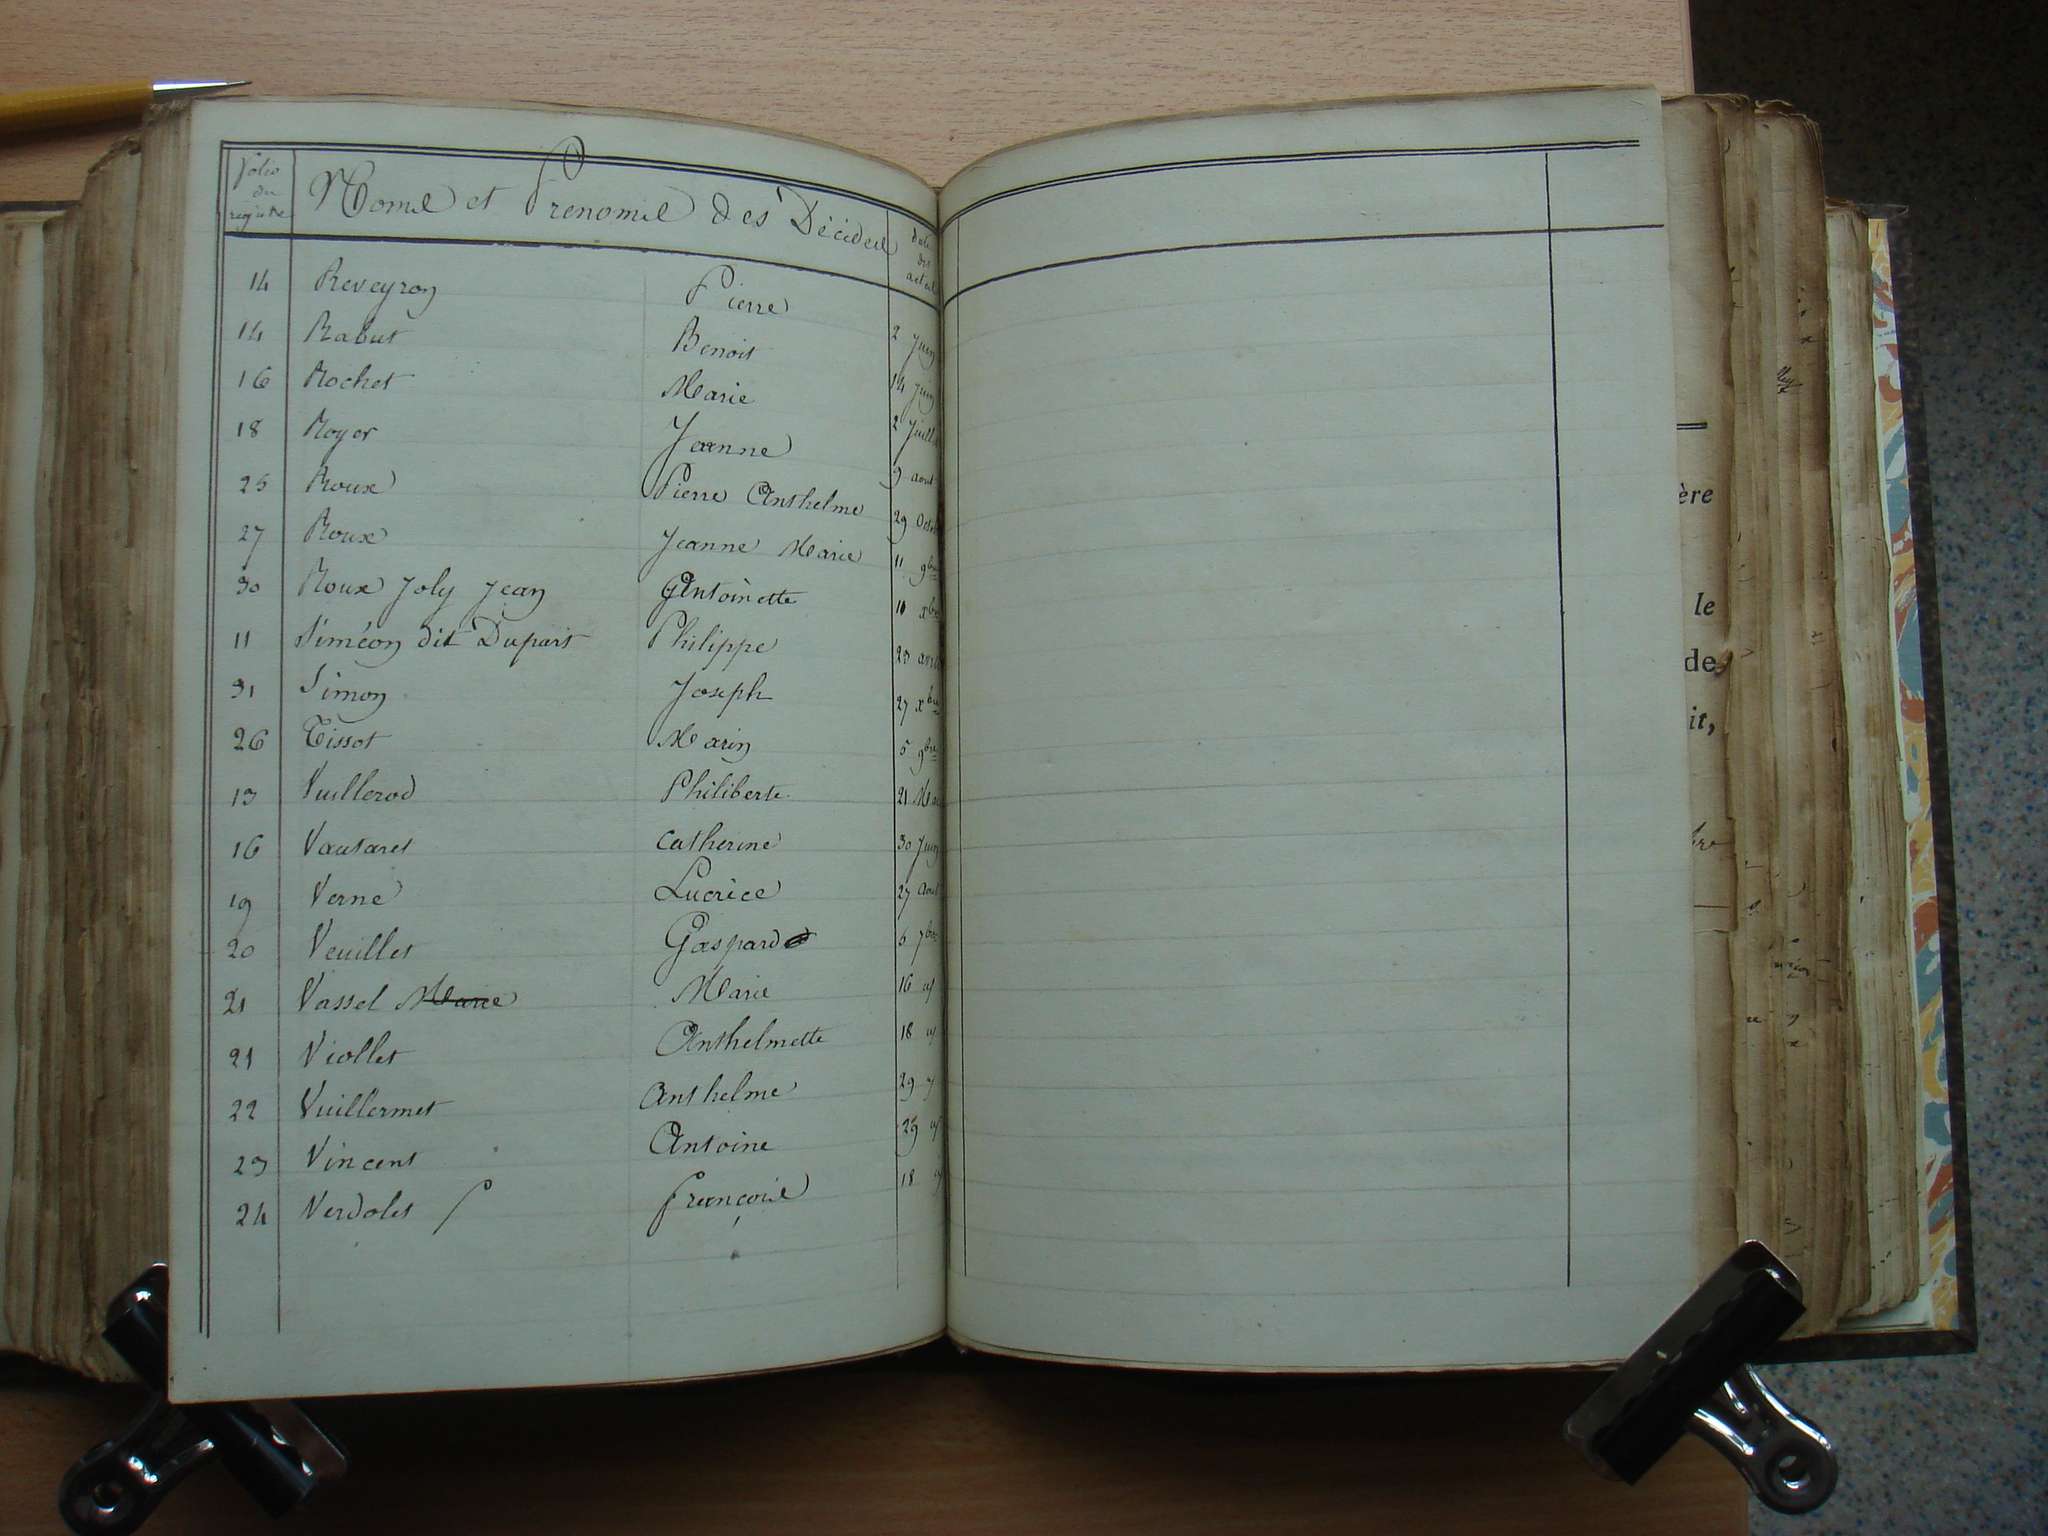 folio du registre
Noms et Prenoms des Décédés
date des actes
14 Reveyron Pierre 2 Juin
14 Rabut Benoit 14 Juin
16 Rochet Marie 2 Juill
18 Royer Jeanne 9 aout
25 Roux Pierre Anthelme 29 Octo
27 Roux Jeanne Marie 11 9bre
30 Roux Joly Jean Antoinette 10 xbre
11 Siméon dit Dupart Philippe 23 avril
31 Simon Joseph 27 xbre
26 Tissot Marin 5 9bre
13 Vuillerod Philiberte 21 Mai
16 Vautaret Catherine 30 Juin
19 Verne Lucrèce 27 Aout
20 Veuillet Gaspard 6 7bre
21 Vassel Marie Marie 16
21 Viollet Anthelmette 18
22 Vuillermet Anthelme 29
23 Vincent Antoine 29
24 Verdolet François 18
ère
le
de
it,